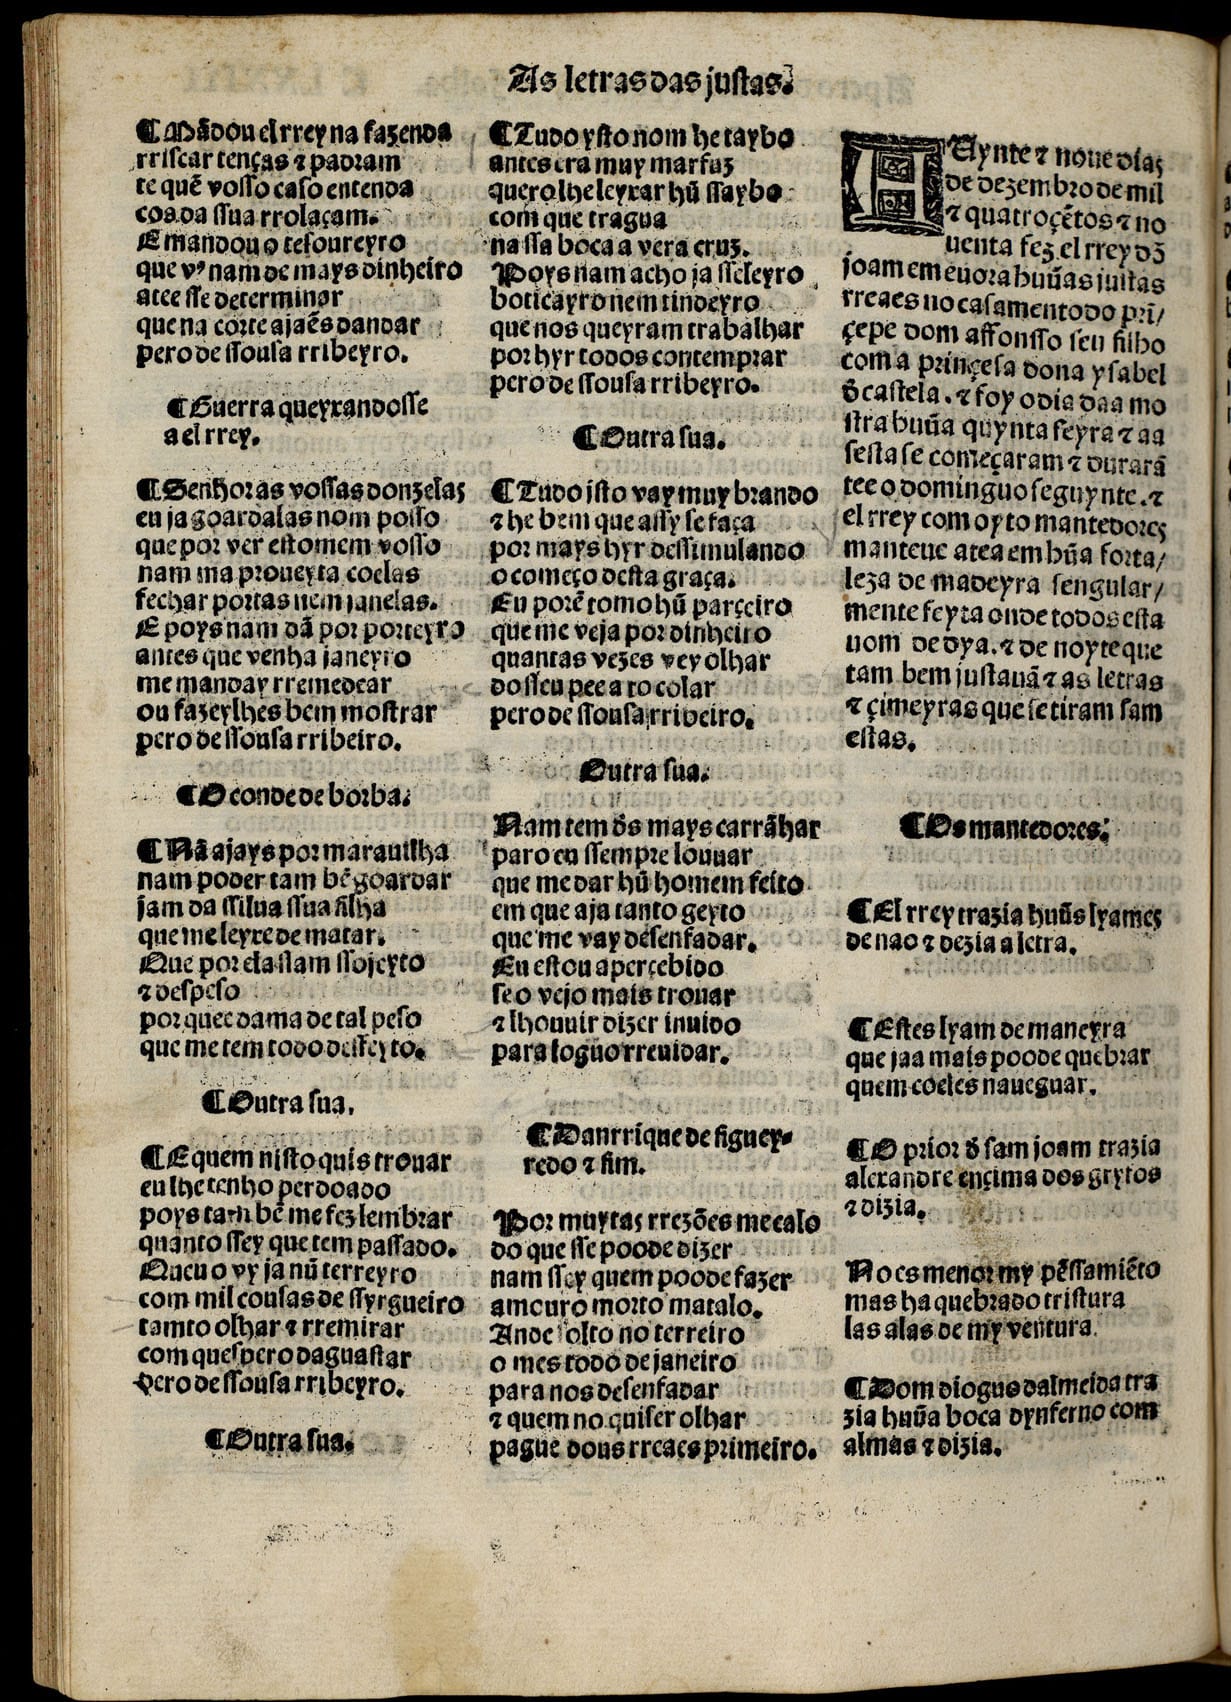 As letras das justas.
¶ Mãdou el rrey na fazenda
rriscar tenças ⁊ padram
te quẽ vosso caso entenda
cos da ssua rrolaçam.
E mandou o tesoureyro
que vꝰ nam de mays dinheiro
atee sse determinar
que na corte ajaẽs dandar
pero de ssousa rribeyro.
¶ Guerra queyxandosse
a el rrey.
¶ Senhor as vossas donzelas
eu ja goardalas nom posso
que por ver estomem vosso
nam ma proueyta coelas
fechar portas nem janelas.
E poys nam dã por porteyro
antes que venha janeyro
me manday rremedear
ou fazeylhes bem mostrar
pero de ssousa rribeiro.
¶ O conde de borba.
¶ Nã ajays por marauilha
nam poder tam bẽ goardar
jam da ssilua ssua filha
que me leyxe de matar.
Que por ela stam ssojeyto
⁊ despeso
por quee dama de tal peso
que me tem todo desfeyto.
¶ Outra sua.
¶ E quem nisto quis trouar
eu lhe tenho perdoado
poys tam bẽ me fez lembrar
quanto ssey que tem passado.
Queu o vy ja nũ terreyro
com mil cousas de ssyrgueiro
tamto olhar ⁊ rremirar
com quespero daguastar
pero de ssousa rribeyro.
¶ Outra sua.
¶ Tudo ysto nom he taybo
antes era muy marfuz
quero lhe leyxar hũ ssaybo
com que tragua
na ssa boca a vera cruz.
Poys nam acho ja sseleyro
boticayro nem tindeyro
que nos queyram trabalhar
por hyr todos contemprar
pero de ssousa rribeyro.
¶ Outra sua.
¶ Tudo isto vay muy brando
⁊ he bem que assy se faça
por mays hyr dessimulando
o começo desta graça.
Eu porẽ tomo hũ parçeiro
que me veja por dinheiro
quantas vezes vey olhar
do sseu pee a to colar
pero de ssousa rribeiro.
Outra sua.
Nam tem ds̃ mays carrãhar
paro eu ssempre louuar
que me dar hũ homem feito
em que aja tanto geyto
que me vay desenfadar.
Eu estou aperçebido
se o vejo mais trouar
⁊ lhouuir dizer inuido
para loguo rreuidar.
¶ Danrrique de figuey-
redo ⁊ fim.
Por muytas rrezões me calo
do que sse poode dizer
nam ssey quem poode fazer
amouro morto matalo.
Ande solto no terreiro
o mes todo de janeiro
para nos desenfadar
⁊ quem no quiser olhar
pague dous rreaes primeiro.
A Uynte ⁊ noue dias
de dezembro de mil
⁊ quatroçẽtos ⁊ no
uenta fez el rrey dõ
joam em euora huũas justas
rreaes no casamento do prĩ/
çepe dom affonsso seu filho
com a prinçesa dona ysabel
d̃ castela. ⁊ foy o dia daa mo
stra huũa quynta feyra ⁊ aa
sesta se começaram ⁊ durarã
tee o dominguo seguynte. ⁊
el rrey com oyto mantedores
manteue a tea em hũa forta/
leza de madeyra sengular/
mente feyta onde todos esta
uom de dya. ⁊ de noyte que
tam bem justauã ⁊ as letras
⁊ çimeyras que se tiram sam
estas.
¶ Os mantedores.
¶ El rrey trazia huũs lyames
de nao ⁊ dezia a letra.
¶ Estes lyam de maneyra
que jaa mais poode quebrar
quem coeles naueguar.
¶ O prior d̃ sam joam trazia
alexandre ençima dos gryfos
⁊ dizia.
No es menor my pẽssamiẽto
mas ha quebrado tristura
las alas de my ventura.
¶ Dom dioguo dalmeida tra
zia huũa boca dynferno com
almas ⁊ dizia.